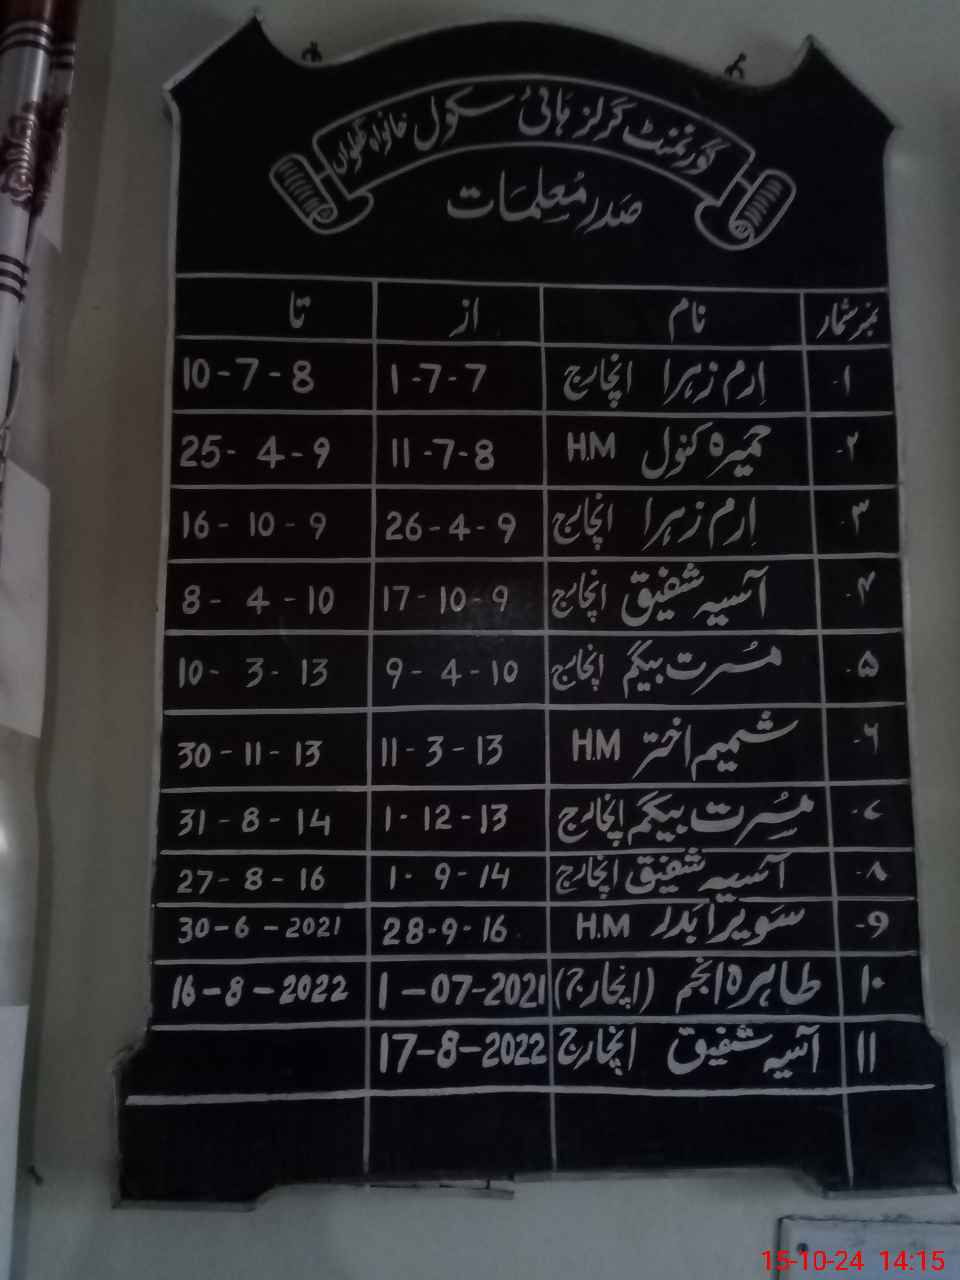 گورنمنٹ گرلز ہائی سکول خانواہ
صدر معلمات
نمبر شمار نام از تا
۱۔ اِرم زہرا انچارج 1-7-7 10-7-8
۲۔ حمیرہ کنول H.M 11-7-8 25-4-9
۳۔ اِرم زہرا انچارج 26-4-9 16-10-9
۴۔ آسیہ شفیق انچارج 17-10-9 8-4-10
۵۔ مسُرت بیگم انچارج 9-4-10 10-3-13
۶۔ شمیم اختر H.M 11-3-13 30-11-13
۷۔ مسُرت بیگم انچارج 1-12-13 31-8-14
۸۔ آسیہ شفیق انچارج 1-9-14 27-8-16
9۔ سویرا بدر H.M 28-9-16 30-6-2021
۱۰ طاہرہ انجم (انچارج) 1-07-2021 16-8-2022
۱۱ آسیہ شفیق انچارج 17-8-2022
15-10-24 14:15